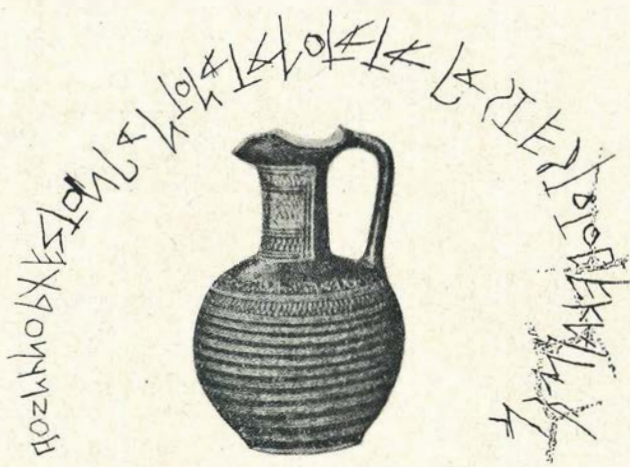 ΗΟΣΝΥΝΟΡΧΕΣΤΟΝΠΑΝΤΟΝΑΤΑΛΟΤΑΤΑΠΑΙΖΕΙΤΟΤΟΔΕΚ